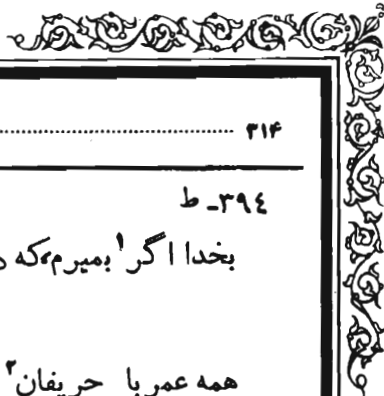 ۳۱۴ ........................
۳۹٤ـ ط
بخدا اگر۱ بمیرم، که
همه عمر با حریفان۲